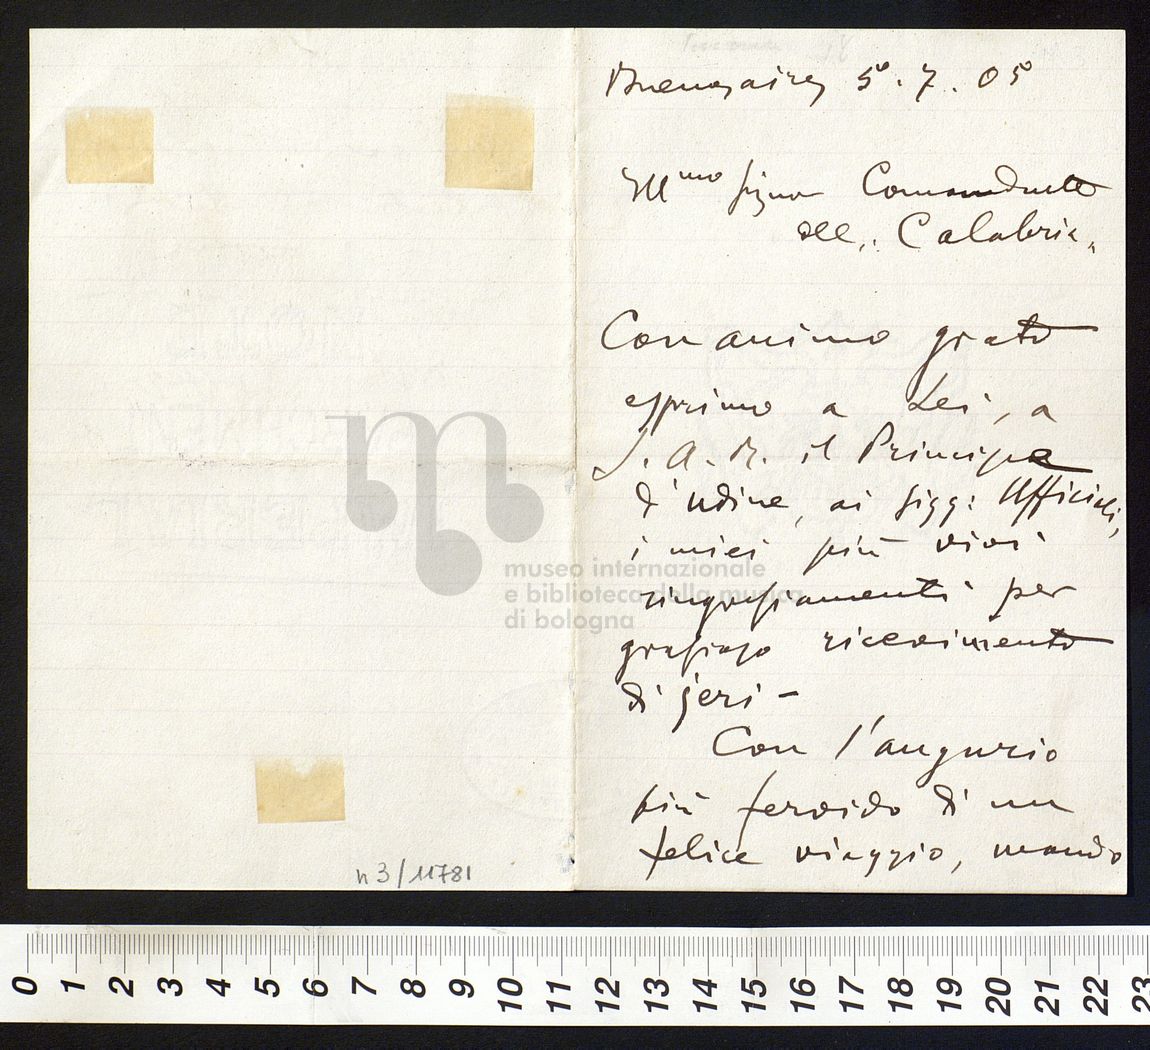 Buenosaires 5.7.05
Illmo Signor Comandante
del „Calabria„
Con animo grato
esprimo a Lei, a
S. A. R. il Principe
d'Udine, ai Sigg: Ufficiali,
i miei più vivi
ringraziamenti per
grazioso ricevimento
di jeri –
Con l'augurio
più fervido di un
felice viaggio, mando
n 3/11781
museo internazionale
e biblioteca della musica
di bologna
0 1 2 3 4 5 6 7 8 9 10 11 12 13 14 15 16 17 18 19 20 21 22 23